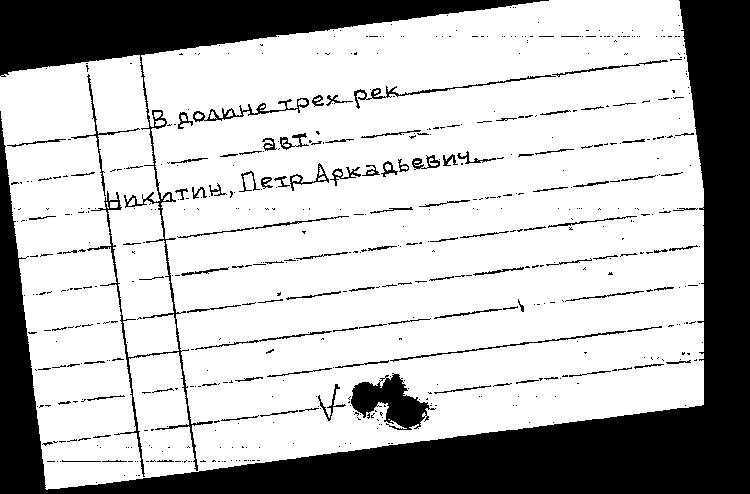 В долине трех рек
авт.:
Никитин, Петр Аркадьевич.
V